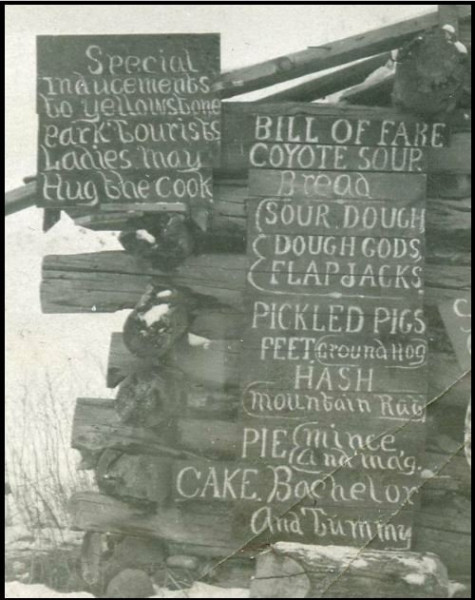 Special
Inducements
to yellowstone
park Tourists
Ladies may
Hug the Cook
BILL OF FARE
COYOTE SOUP.
Bread
SOUR. DOUGH
DOUGH GODS
FLAPJACKS.
PICKLED PIGS
FEET Ground Hog
HASH
Mountain Rat
PIE mince
And
CAKE. Bachelor
And Tummy